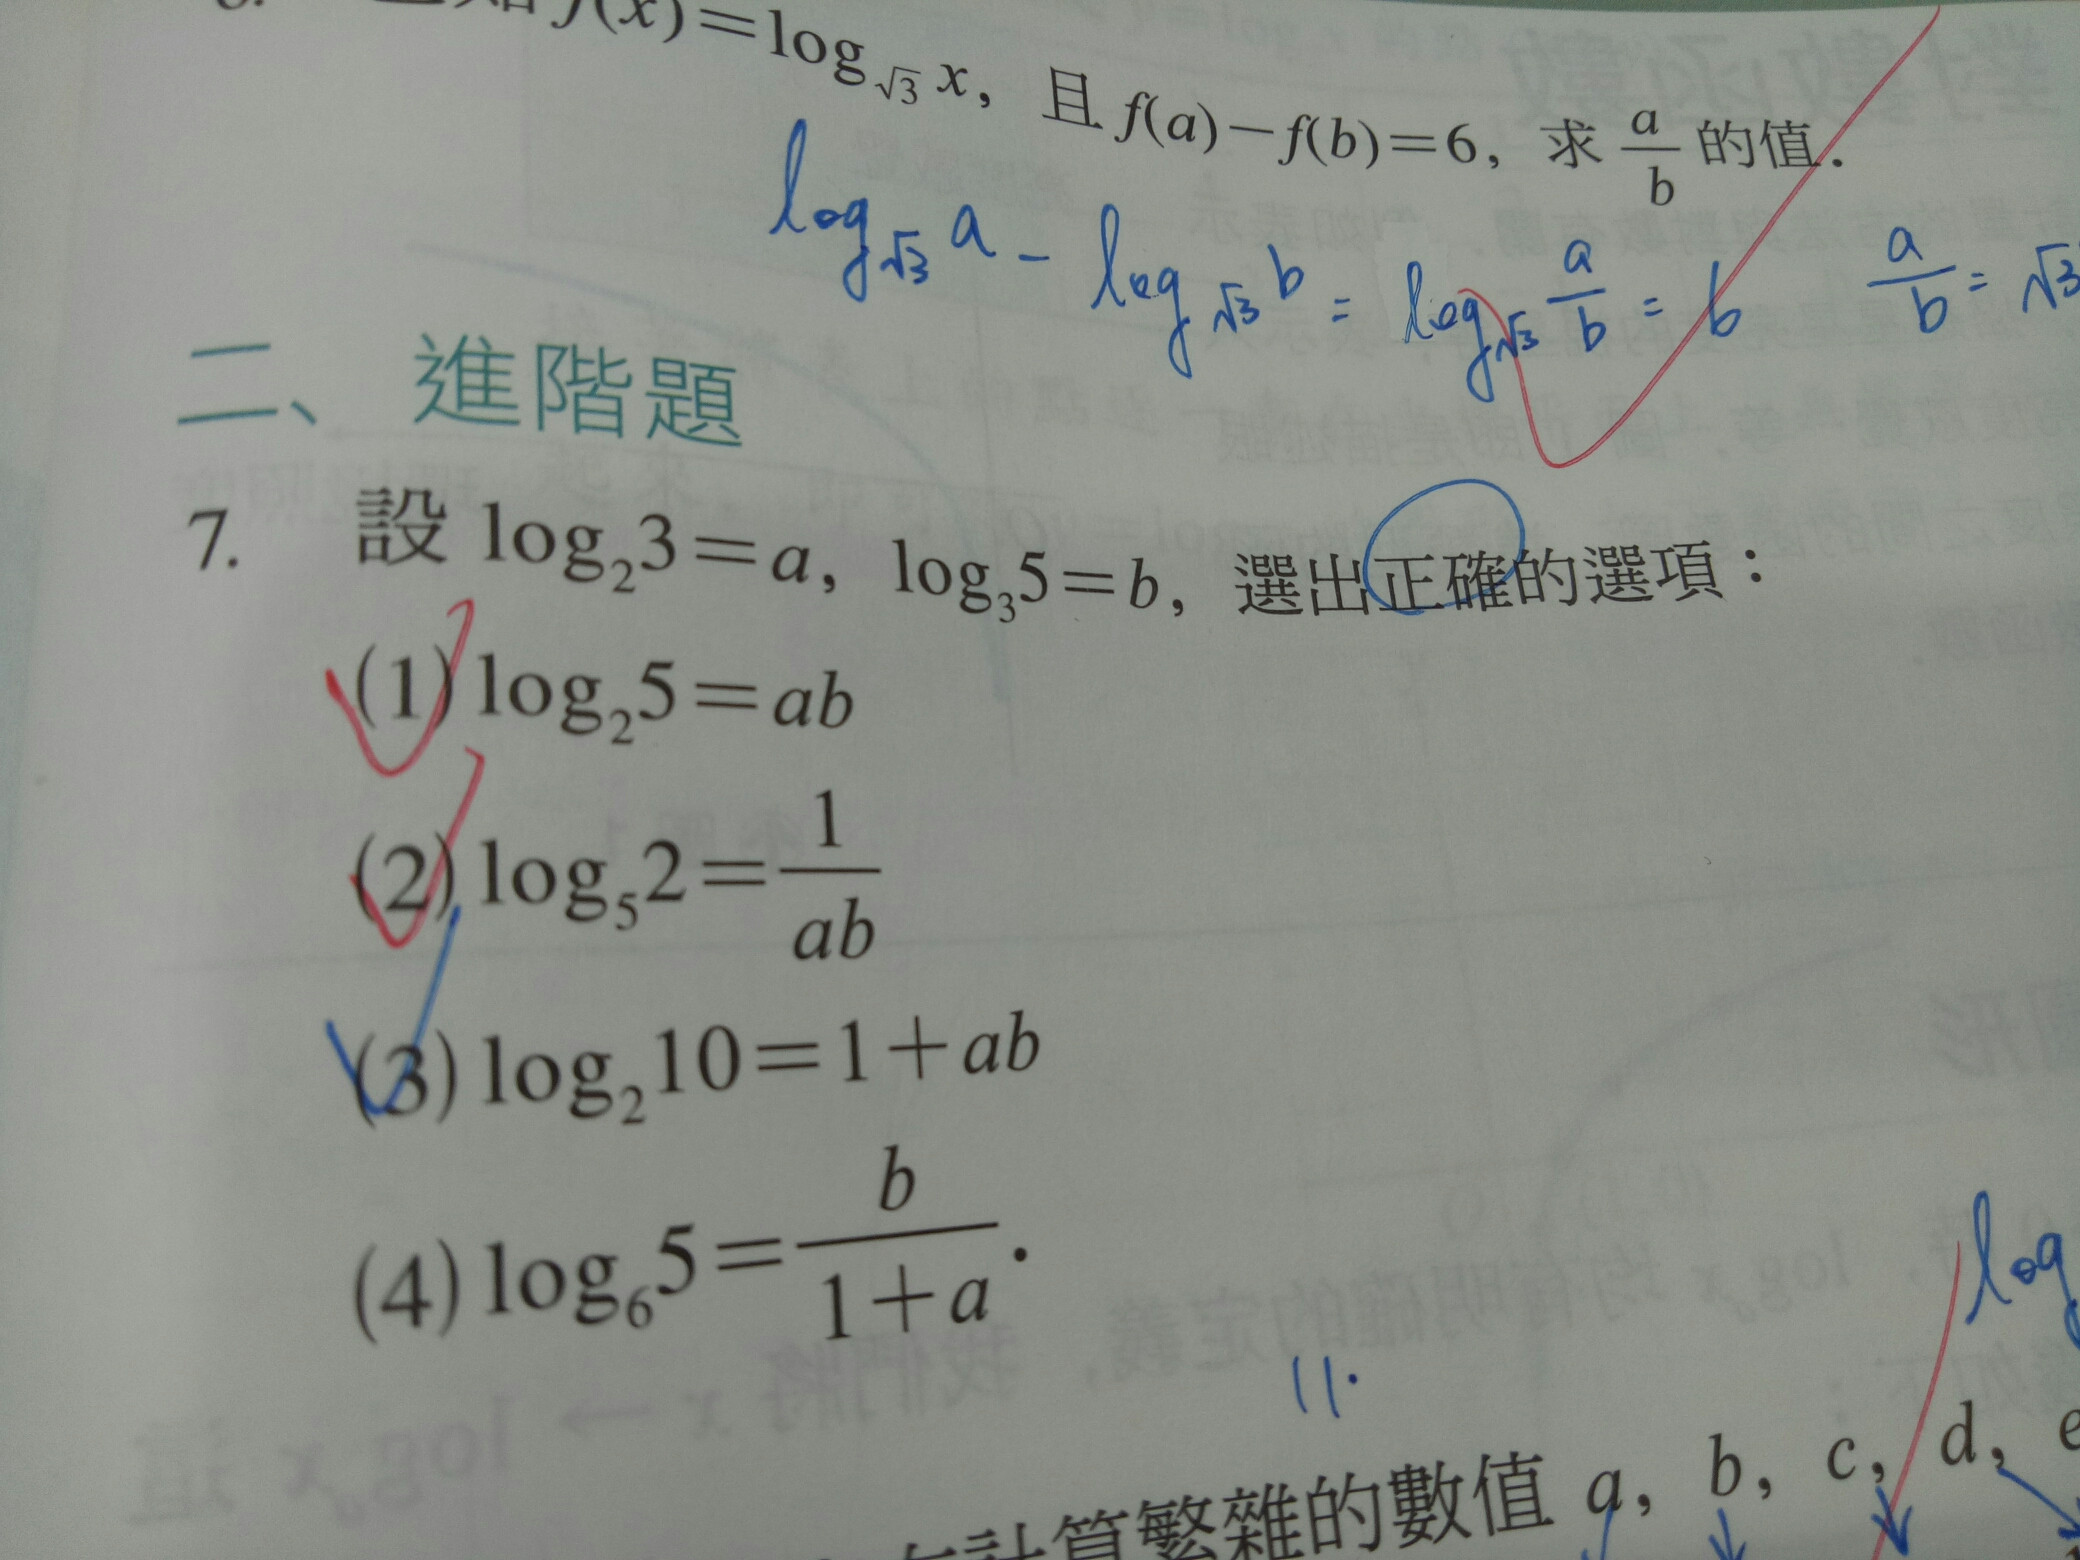 f(x)=log_{√3} x, 且 f(a)−f(b)=6, 求 a/b 的值.
log_{√3} a − log_{√3} b = log_{√3} a/b = 6 a/b = √3
二、進階題
7. 設 log₂3=a, log₃5=b, 選出正確的選項：
(1) log₂5=ab
(2) log₅2=1/ab
(3) log₂10=1+ab
(4) log₆5=b/(1+a).
log
11.
計算繁雜的數值 a, b, c, d, e